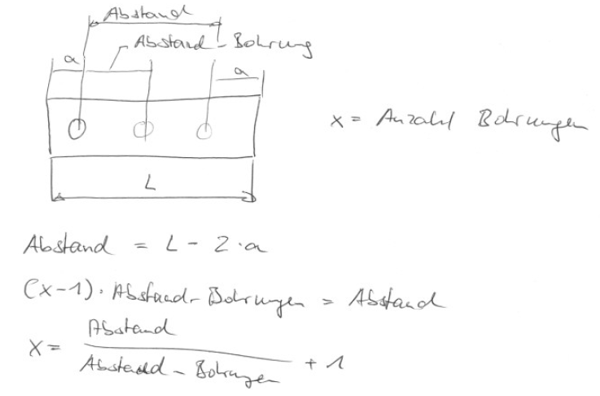 Abstand
Abstand-Bohrung
a
a
x = Anzahl Bohrungen
L
Abstand = L - 2 · a
(x-1) · Abstand-Bohrungen = Abstand
x = Abstand / Abstand-Bohrungen + 1